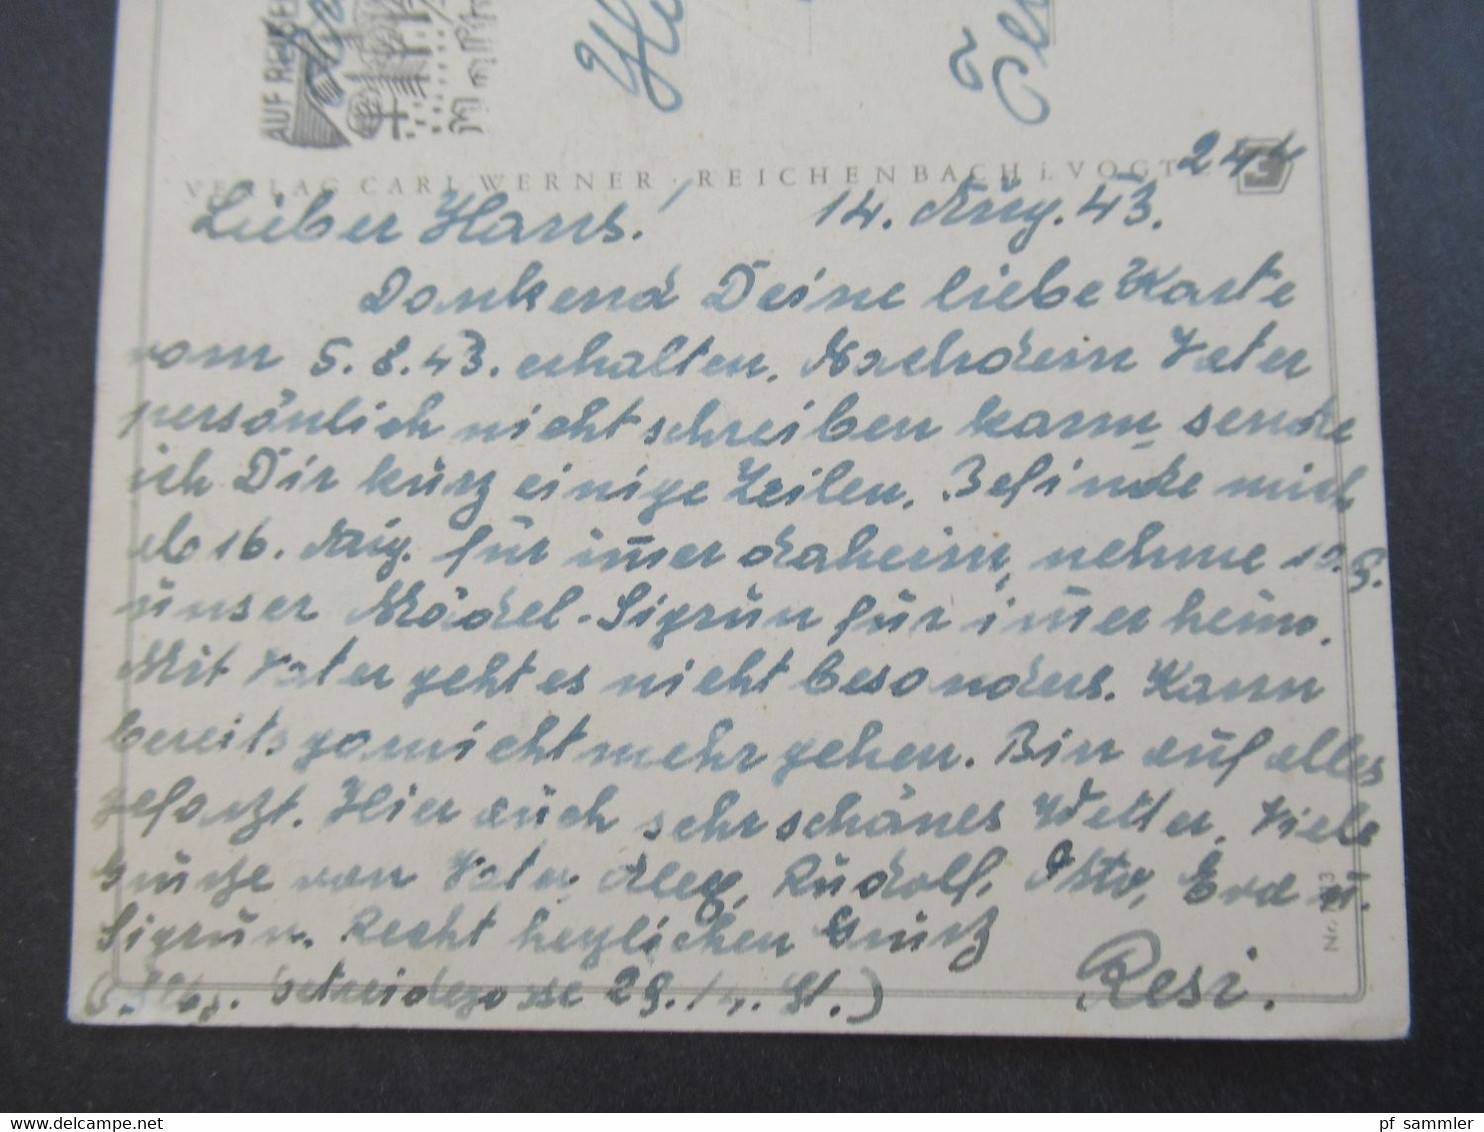 AUF REISE
VERLAG CARL WERNER · REICHENBACH i. VOGT
3
Lieber Hans! 14. Aug. 43.
Dankend Deine liebe Karte
vom 5.8.43. erhalten. Nachdem Vater
persönlich nicht schreiben kann, sende
ich Dir kurz einige Zeilen. Befinde mich
ab 16. Aug. für im̄er daheim, nehme
unser Mädel - Sigrun für im̄er heim.
Mit Vater geht es nicht besonders. Kann
bereits garnicht mehr gehen. Bin auf alles
gefaszt. Hier auch sehr schönes Wetter. Viele
von Vater, Rudolf, u.
Sigrun. Recht herzlichen Grusz
Resi.
Nr.
delcampe.net
pf sammler